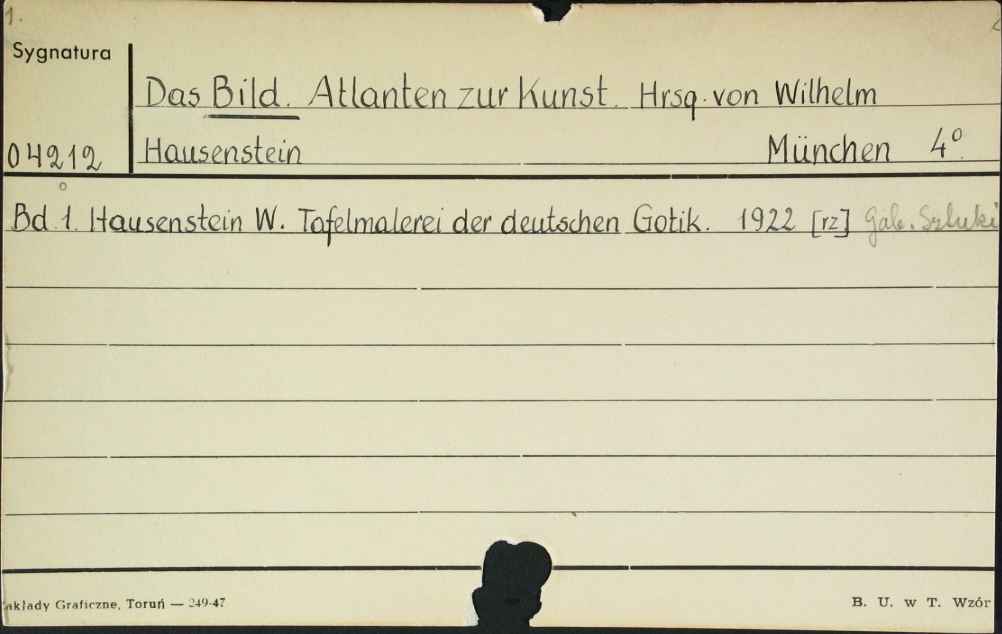 1.
Sygnatura
Das Bild. Atlanten zur Kunst. Hrsg. von Wilhelm
04212 Hausenstein München 4°.
Bd. 1. Hausenstein W. Tafelmalerei der deutschen Gotik. 1922 [rz] Gab. Sztuki
akłady Graficzne, Toruń — 249-47
B. U. w T. Wzór